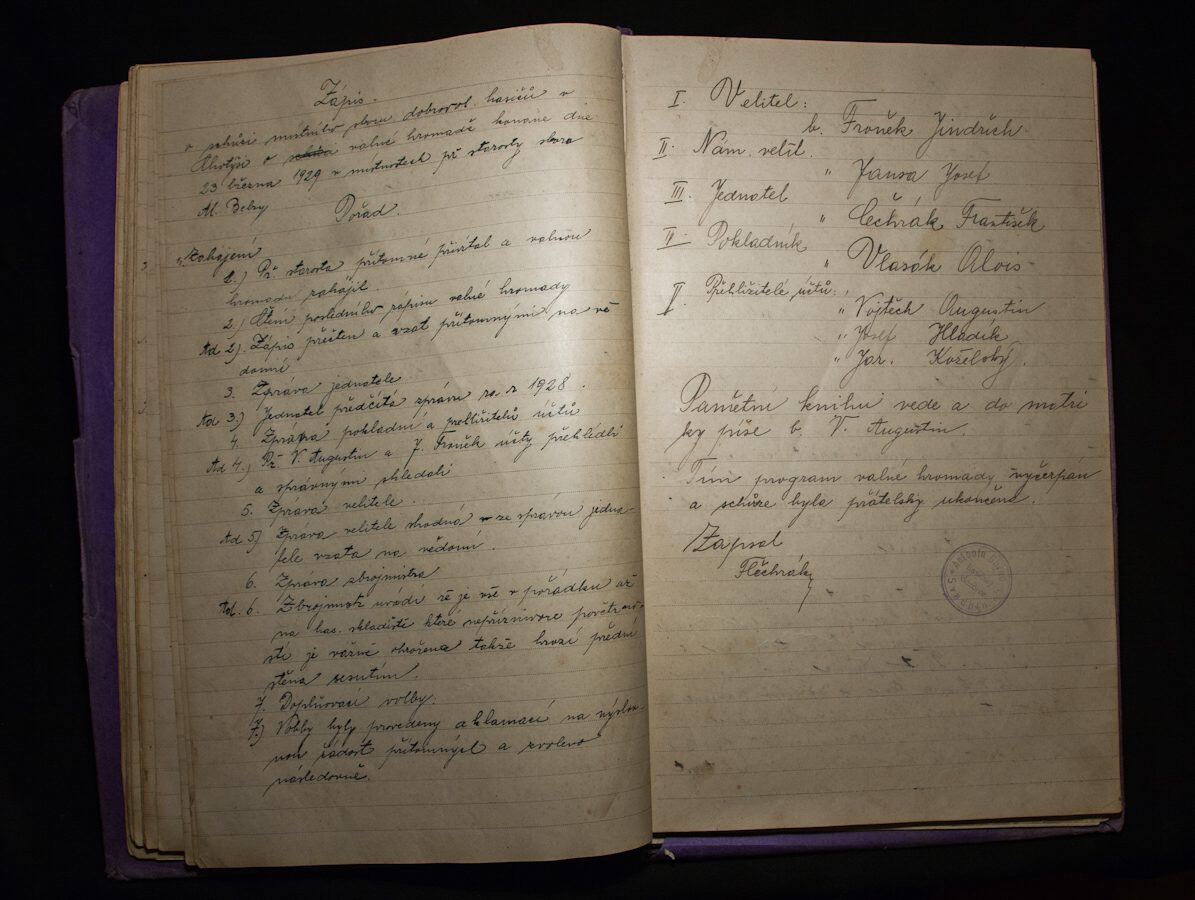 Zápis.
o schůzi místního sboru dobrovol. hasičů v
Chotýši o valné hromadě konane dne
23 března 1929 v místnostech př. starosty sboru
Al. Bebry
Pořad.
Zahájení
1.) Př. starosta přítomné přivítal a valnou
hromadu zahájil.
2.) Čtení posledního zápisu valné hromady
Ad 2). Zápis přečten a vzat přítomnými na vě-
domí
3. Zpráva jednatele
Ad 3.) Jednatel předčítá zprávu za r 1928.
4. Zpráva pokladní a přehlížitelů účtů
Ad 4.) Př. V. Augustin a J. Froněk účty přehlédli
a správnými shledali
5. Zpráva velitele.
Ad 5) Zpráva velitele shodná ze zprávou jedna-
tele vzata na vědomí.
6. Zpráva zbrojmistra
Ad. 6. Zbrojmistr uvádí že je vše v pořádku až
na has. skladiště které nepříznivou povětrno-
stí je vážne ohrožena takže hrozí přední
stěna sesutím.
7. Doplňovací volby.
7.) Volby byly provedeny aklamací na výslov-
nou žádost přítomných a zvoleno
následovně.
I. Velitel:
b. Froněk Jindřich.
II. Nám. velit.
" Jansa Josef
III. Jednatel
" Čechrák František
IV Pokladník
" Vlasák Alois
V Přehlížitelé účtů:
" Vojtěch Augustin
" Josef Hladík
" Jar. Koželský.
Pamětní knihu vede a do matri
ky píše b. V. Augustin.
Tím program valné hromady vyčerpán
a schůze byla přátelsky ukončena.
Zapsal
FČechrák